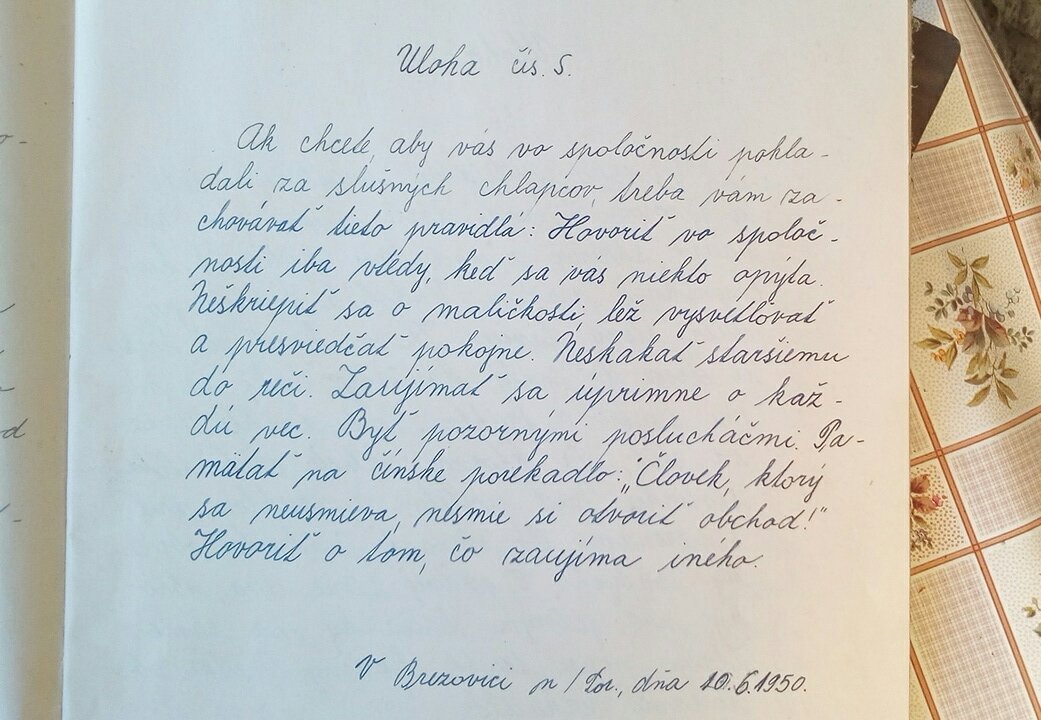 Uloha čís. 5.
Ak chcete, aby vás vo spoločnosti pokla-
dali za slušných chlapcov, treba vám za-
chovávať tieto pravidlá: Hovoriť vo spoloč-
nosti iba vtedy, keď sa vás niekto opýta.
Neškriepiť sa o maličkosti, lež vysvetľovať
a presviedčať pokojne. Neskakať staršiemu
do reči. Zaujímať sa úprimne o kaž-
dú vec. Byť pozornými poslucháčmi. Pa-
mätať na čínske porekadlo: „Človek, ktorý
sa neusmieva, nesmie si otvoriť obchod!"
Hovoriť o tom, čo zaujíma iného.
V Brezovici n/Tor., dňa 10.6.1950.